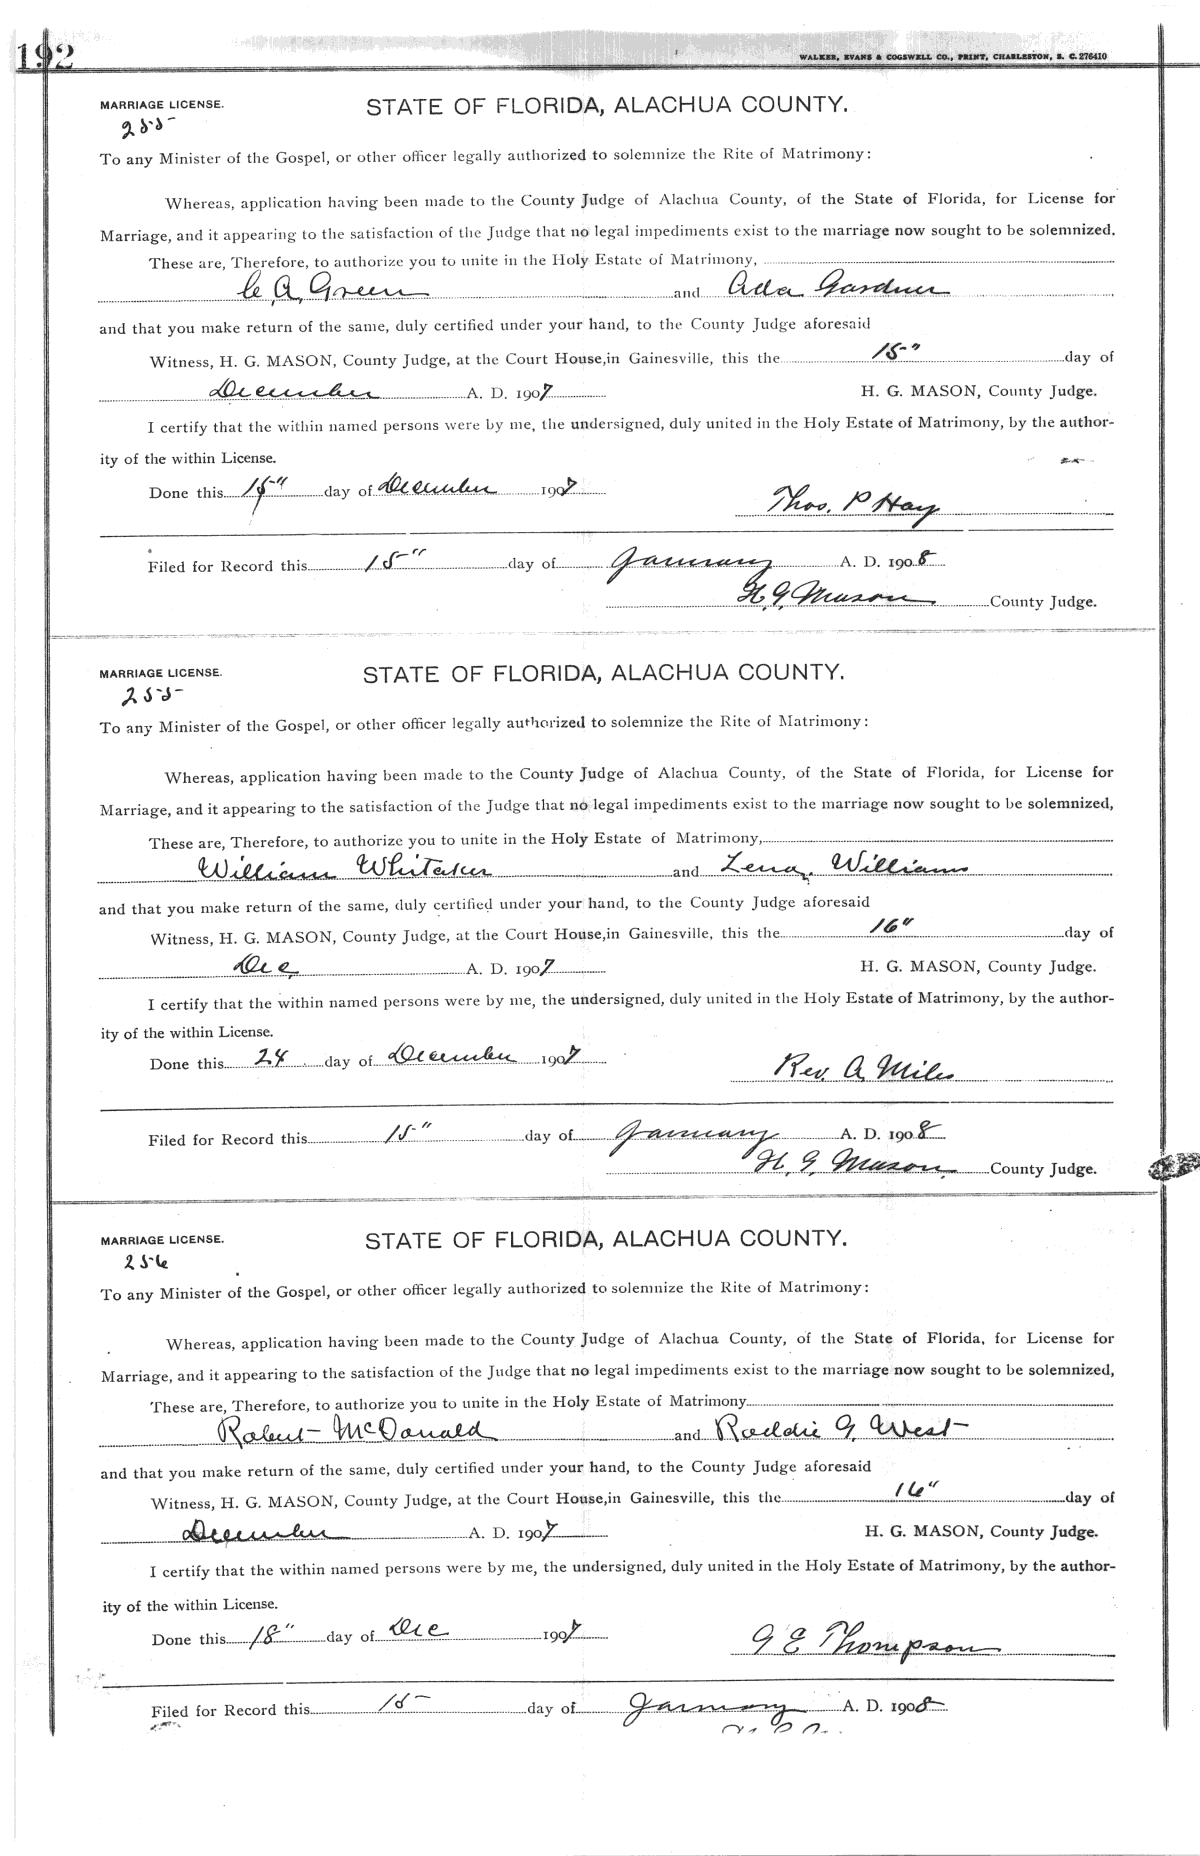 192
WALKER, EVANS & COGSWELL CO., PRINT, CHARLESTON, S. C. 276410
MARRIAGE LICENSE. STATE OF FLORIDA, ALACHUA COUNTY.
255
To any Minister of the Gospel, or other officer legally authorized to solemnize the Rite of Matrimony:
Whereas, application having been made to the County Judge of Alachua County, of the State of Florida, for License for
Marriage, and it appearing to the satisfaction of the Judge that no legal impediments exist to the marriage now sought to be solemnized,
These are, Therefore, to authorize you to unite in the Holy Estate of Matrimony,
C. A. Green and Ada Gardner
and that you make return of the same, duly certified under your hand, to the County Judge aforesaid
Witness, H. G. MASON, County Judge, at the Court House, in Gainesville, this the 15" day of
December A. D. 1907 H. G. MASON, County Judge.
I certify that the within named persons were by me, the undersigned, duly united in the Holy Estate of Matrimony, by the author-
ity of the within License.
Done this 15" day of December 1907
Thos. P Hay
Filed for Record this 15" day of January A. D. 1908
H. G. Mason County Judge.
MARRIAGE LICENSE. STATE OF FLORIDA, ALACHUA COUNTY.
255
To any Minister of the Gospel, or other officer legally authorized to solemnize the Rite of Matrimony:
Whereas, application having been made to the County Judge of Alachua County, of the State of Florida, for License for
Marriage, and it appearing to the satisfaction of the Judge that no legal impediments exist to the marriage now sought to be solemnized,
These are, Therefore, to authorize you to unite in the Holy Estate of Matrimony,
William Whitaker and Lena Williams
and that you make return of the same, duly certified under your hand, to the County Judge aforesaid
Witness, H. G. MASON, County Judge, at the Court House, in Gainesville, this the 16" day of
Dec. A. D. 1907 H. G. MASON, County Judge.
I certify that the within named persons were by me, the undersigned, duly united in the Holy Estate of Matrimony, by the author-
ity of the within License.
Done this 24 day of December 1907
Rev. A. Miles
Filed for Record this 15" day of January A. D. 1908
H. G. Mason County Judge.
MARRIAGE LICENSE. STATE OF FLORIDA, ALACHUA COUNTY.
256
To any Minister of the Gospel, or other officer legally authorized to solemnize the Rite of Matrimony:
Whereas, application having been made to the County Judge of Alachua County, of the State of Florida, for License for
Marriage, and it appearing to the satisfaction of the Judge that no legal impediments exist to the marriage now sought to be solemnized,
These are, Therefore, to authorize you to unite in the Holy Estate of Matrimony
Robert McDonald and Roddie G. West
and that you make return of the same, duly certified under your hand, to the County Judge aforesaid
Witness, H. G. MASON, County Judge, at the Court House, in Gainesville, this the 16" day of
December A. D. 1907 H. G. MASON, County Judge.
I certify that the within named persons were by me, the undersigned, duly united in the Holy Estate of Matrimony, by the author-
ity of the within License.
Done this 18" day of Dec 1907
G E Thompson
Filed for Record this 15 day of January A. D. 1908